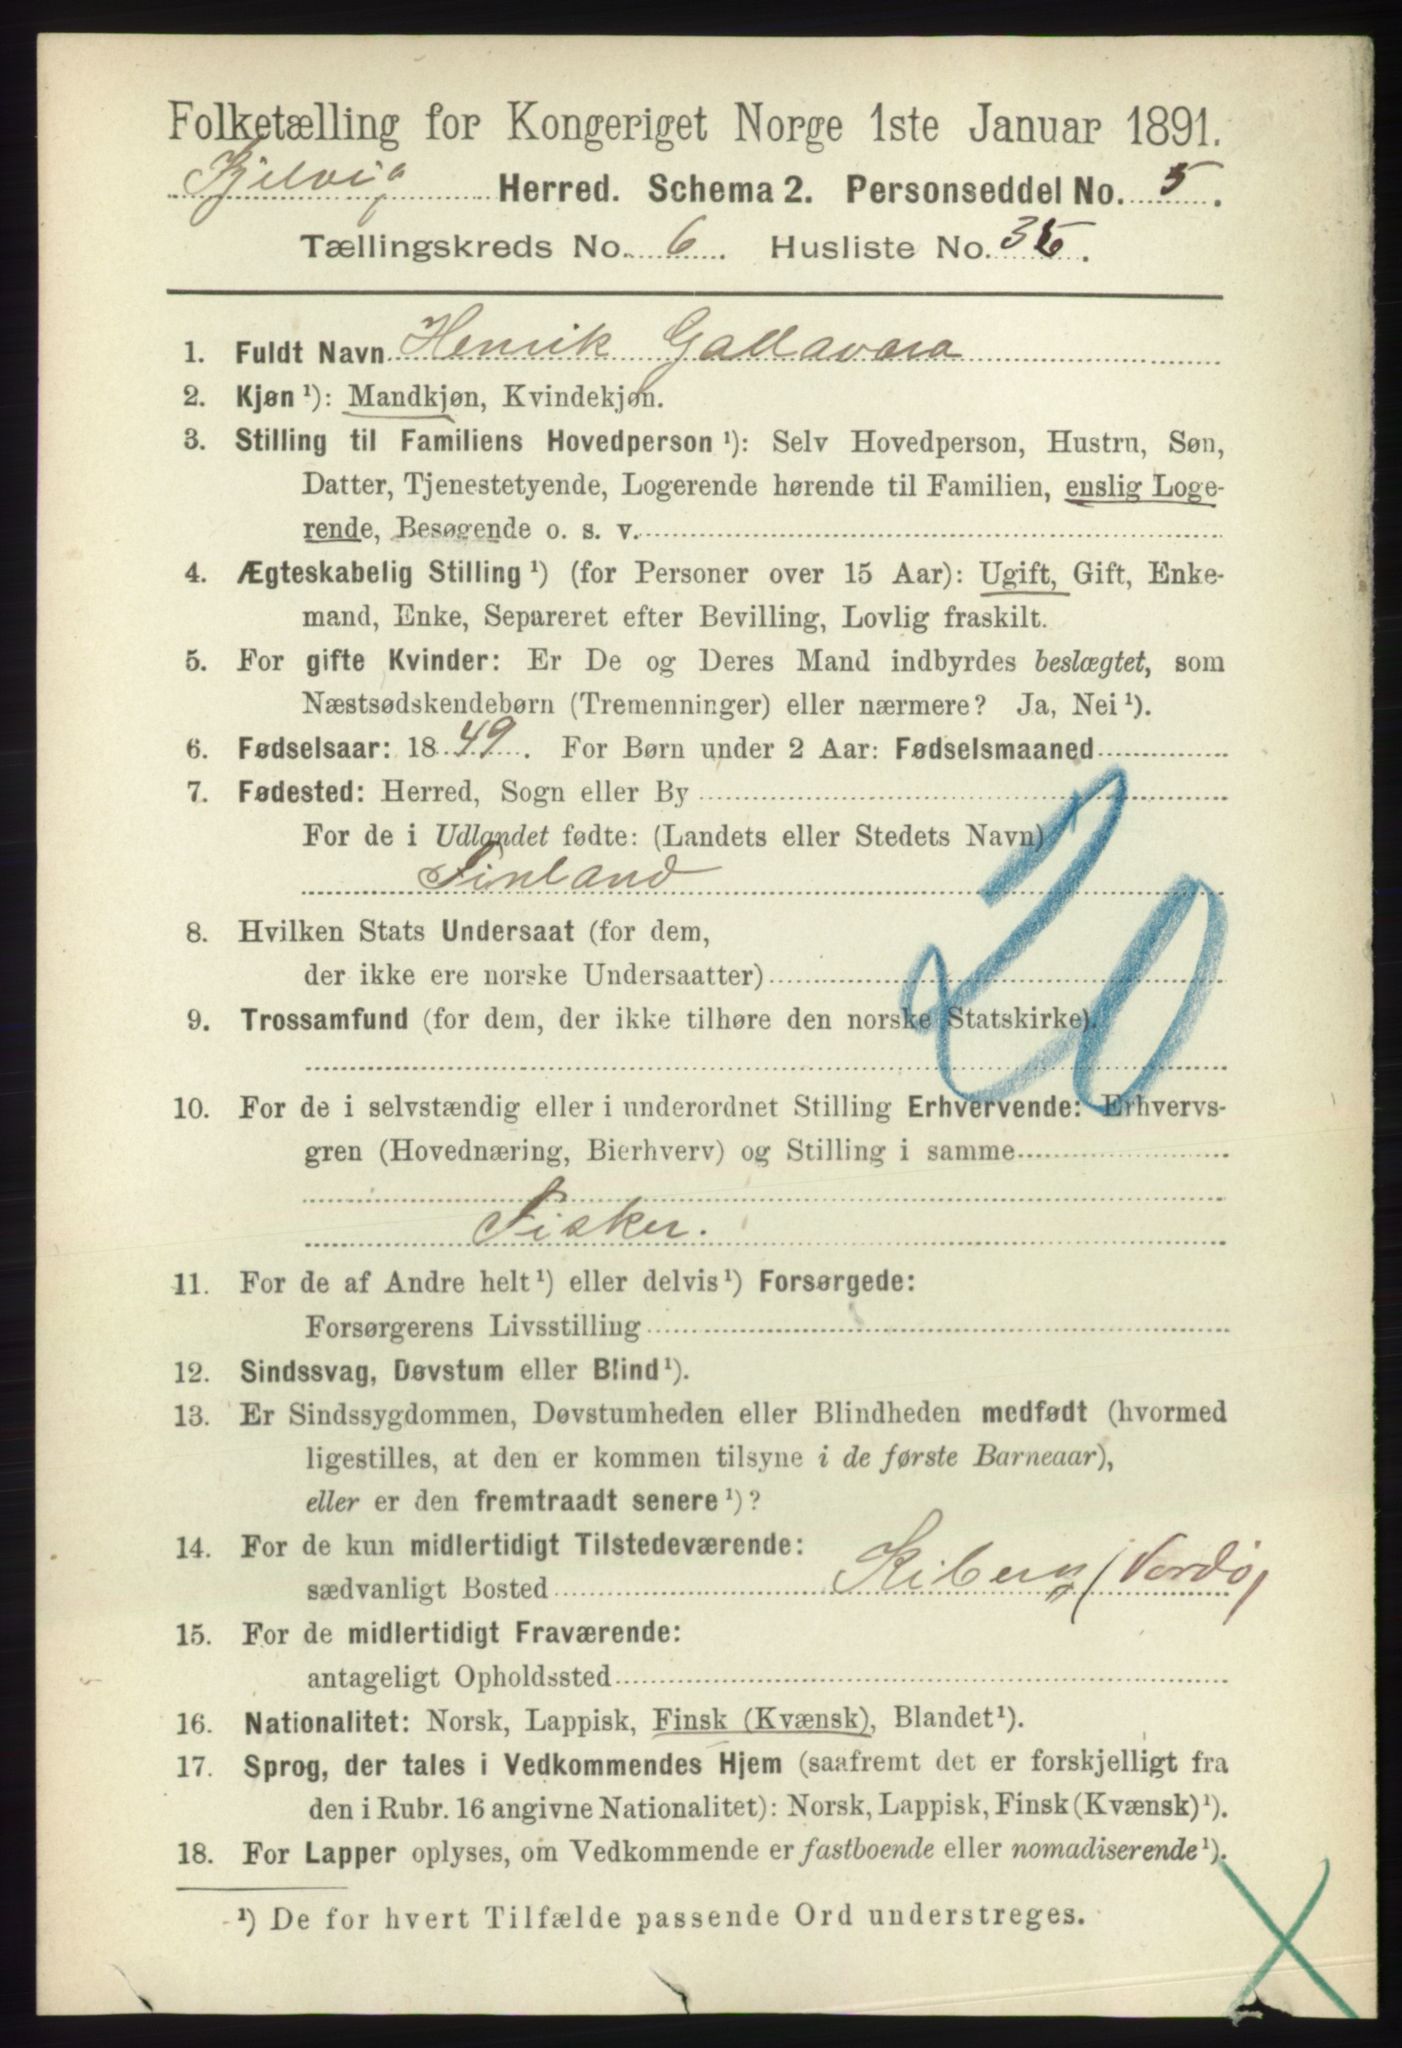 Folketælling for Kongeriget Norge 1ste Januar 1891.
Kjelvig Herred. Schema 2. Personseddel No. 5.
Tællingskreds No. 6. Husliste No. 35.
1. Fuldt Navn Henrik Gallavara
2. Kjøn ¹): Mandkjøn, Kvindekjøn.
3. Stilling til Familiens Hovedperson ¹): Selv Hovedperson, Hustru, Søn,
Datter, Tjenestetyende, Logerende hørende til Familien, enslig Loge-
rende, Besøgende o. s. v.
4. Ægteskabelig Stilling ¹) (for Personer over 15 Aar): Ugift, Gift, Enke-
mand, Enke, Separeret efter Bevilling, Lovlig fraskilt.
5. For gifte Kvinder: Er De og Deres Mand indbyrdes beslægtet, som
Næstsødskendebørn (Tremenninger) eller nærmere? Ja, Nei ¹).
6. Fødselsaar: 1849. For Børn under 2 Aar: Fødselsmaaned
7. Fødested: Herred, Sogn eller By
For de i Udlandet fødte: (Landets eller Stedets Navn)
Finland
20
8. Hvilken Stats Undersaat (for dem,
der ikke ere norske Undersaatter)
9. Trossamfund (for dem, der ikke tilhøre den norske Statskirke).
10. For de i selvstændig eller i underordnet Stilling Erhvervende: Erhvervs-
gren (Hovednæring, Bierhverv) og Stilling i samme
Fisker.
11. For de af Andre helt ¹) eller delvis ¹) Forsørgede:
Forsørgerens Livsstilling
12. Sindssvag, Døvstum eller Blind ¹).
13. Er Sindssygdommen, Døvstumheden eller Blindheden medfødt (hvormed
ligestilles, at den er kommen tilsyne i de første Barneaar),
eller er den fremtraadt senere ¹)?
14. For de kun midlertidigt Tilstedeværende:
sædvanligt Bosted Kiberg (Vardø)
15. For de midlertidigt Fraværende:
antageligt Opholdssted
16. Nationalitet: Norsk, Lappisk, Finsk (Kvænsk), Blandet ¹).
17. Sprog, der tales i Vedkommendes Hjem (saafremt det er forskjelligt fra
den i Rubr. 16 angivne Nationalitet): Norsk, Lappisk, Finsk (Kvænsk) ¹).
18. For Lapper oplyses, om Vedkommende er fastboende eller nomadiserende ¹).
¹) De for hvert Tilfælde passende Ord understreges.